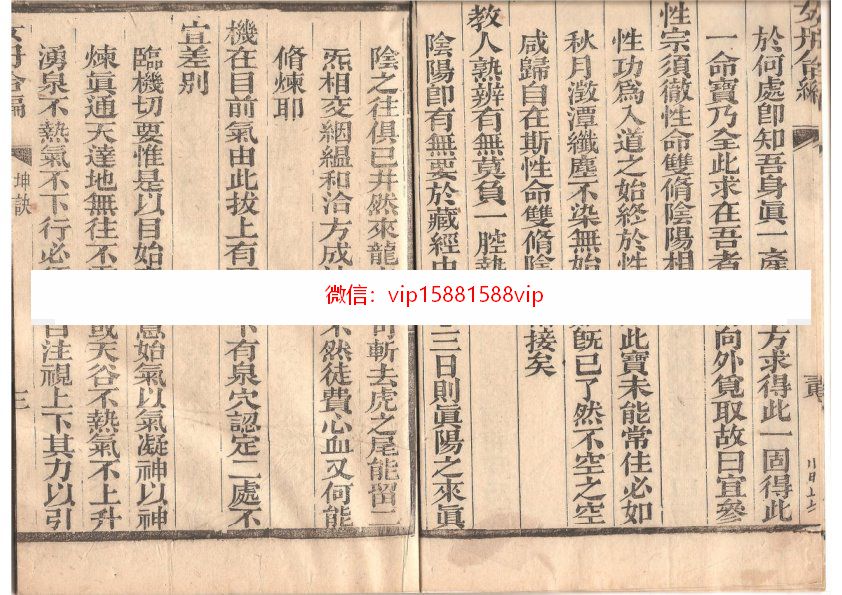 女丹合編
於何處卽知吾身眞一產 方求得此一固得此
一命寶乃全此求在吾者 向外覓取故曰宜參
性宗須徹性命雙脩陰陽相
性功爲入道之始終於性 此寶未能常住必如
秋月澂潭纖塵不染無始 旣已了然不空之空
咸歸自在斯性命雙脩陰 接矣
教人熟辨有無莫負一腔熱
陰陽卽有無要於藏經中 三日則眞陽之來眞
陰之往俱已井然來龍 可斬去虎之尾能留二
炁相交絪緼和洽方成 不然徒費心血又何能
脩煉耶
機在目前氣由此拔上有 下有泉穴認定二處不
宜差別
臨機切要惟是以目始 息始氣以氣凝神以神
煉眞通天達地無往不 或天谷不熱氣不上升
湧泉不熱氣不下行必 目注視上下其力以引
女丹合編 坤訣 三
微信：vip15881588vip